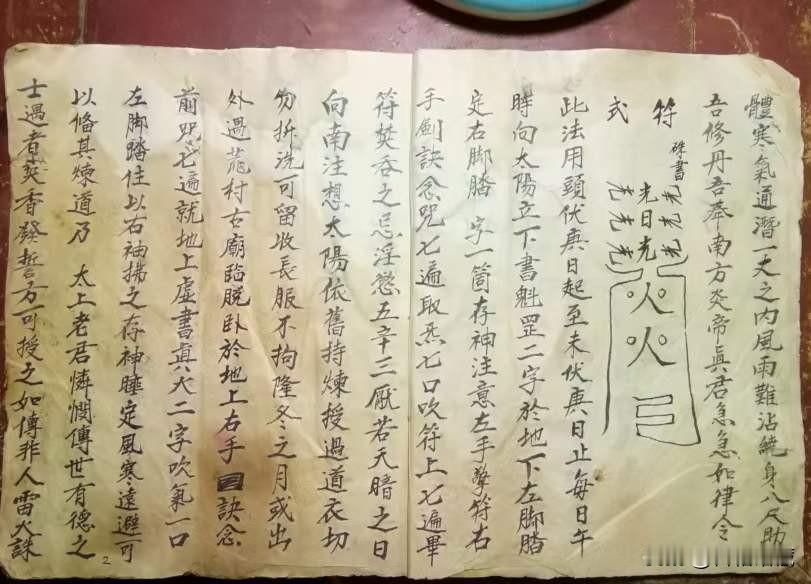 體寒氣通潛一丈之內風雨難沾繞身八尺助
吾修丹吾奉南方炎帝眞君急急如律令
符式
硃書
光日光
火火
此法用頭伏庚日起至末伏庚日止每日午
時向太陽立下書魁罡二字於地下左脚踏
定右脚踏 字一箇存神注意左手擎符右
手劍訣念咒七遍取炁七口吹符上七遍畢
符焚吞之忌淫慾五辛三厭若天暗之日
向南注想太陽依舊持煉授過道衣切
勿拆洗可留收長服不拘隆冬之月或出
外過荒村古廟臨脱卧於地上右手訣念
前咒七遍就地上虛書眞火二字吹氣一口
左脚踏住以右袖揚之存神睡定風寒遠避可
以俻其煉道乃 太上老君憐憫傳世有德之
士過者焚香發誓方可授之如傳非人雷火誅
2